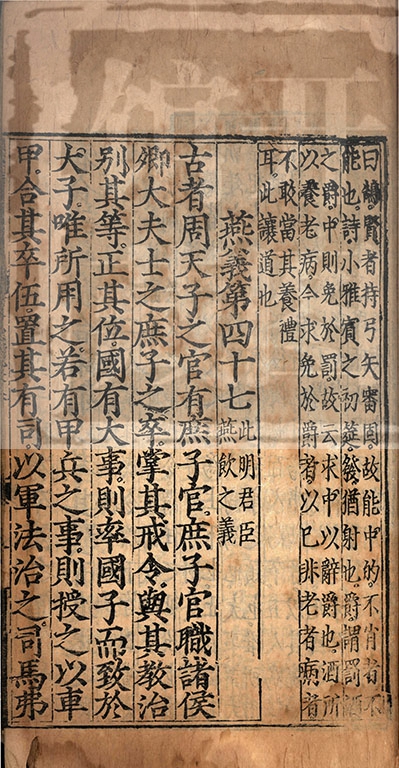 曰鵠賢者持弓矢審固故能中的不肖者不
能也。詩小雅賓之初筵。發猶射也。爵謂罰酒
之爵中則免於罰。故云求中以辭爵也。酒所
以養老病。今求免於爵者。以已非老者病者
不敢當其養禮
耳。此讓道也
燕義第四十七
此明君臣
燕飲之義
古者周天子之官有庶子官。庶子官職諸侯
卿大夫士之庶子之卒。掌其戒令。與其教治
別其等。正其位。國有大事。則率國子而致於
大子。唯所用之。若有甲兵之事。則授之以車
甲。合其卒伍。置其有司。以軍法治之。司馬弗